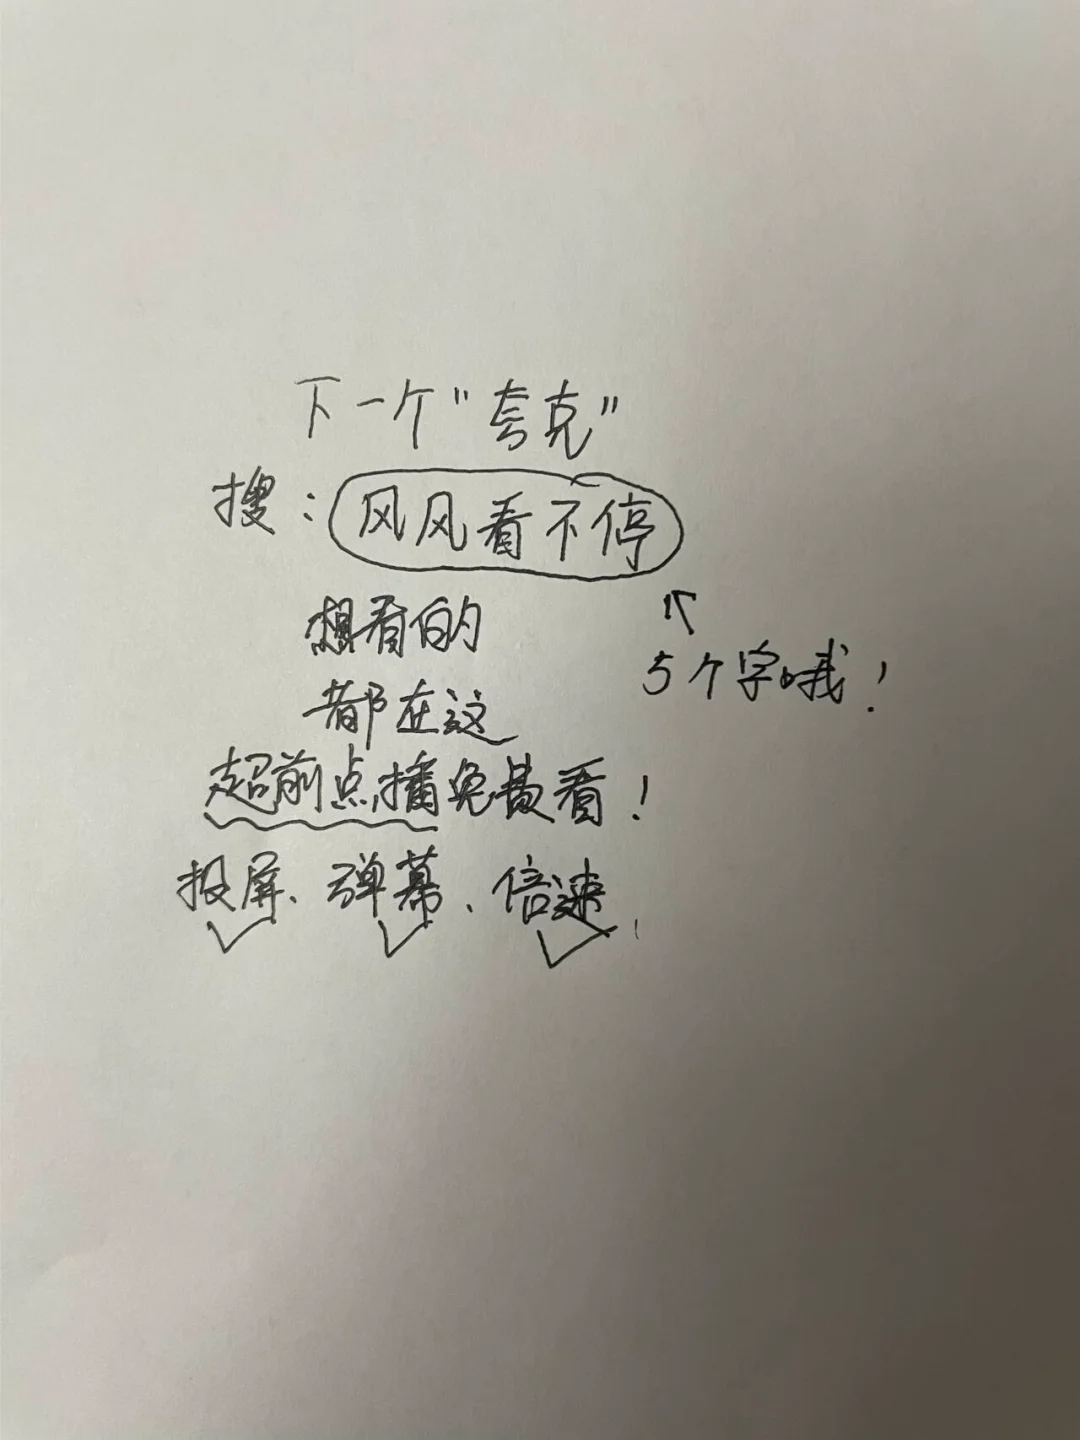 下一个“夸克”
搜：风风看不停
想看的
5个字哦！
都在这
超前点播免费看！
投屏、弹幕、倍速